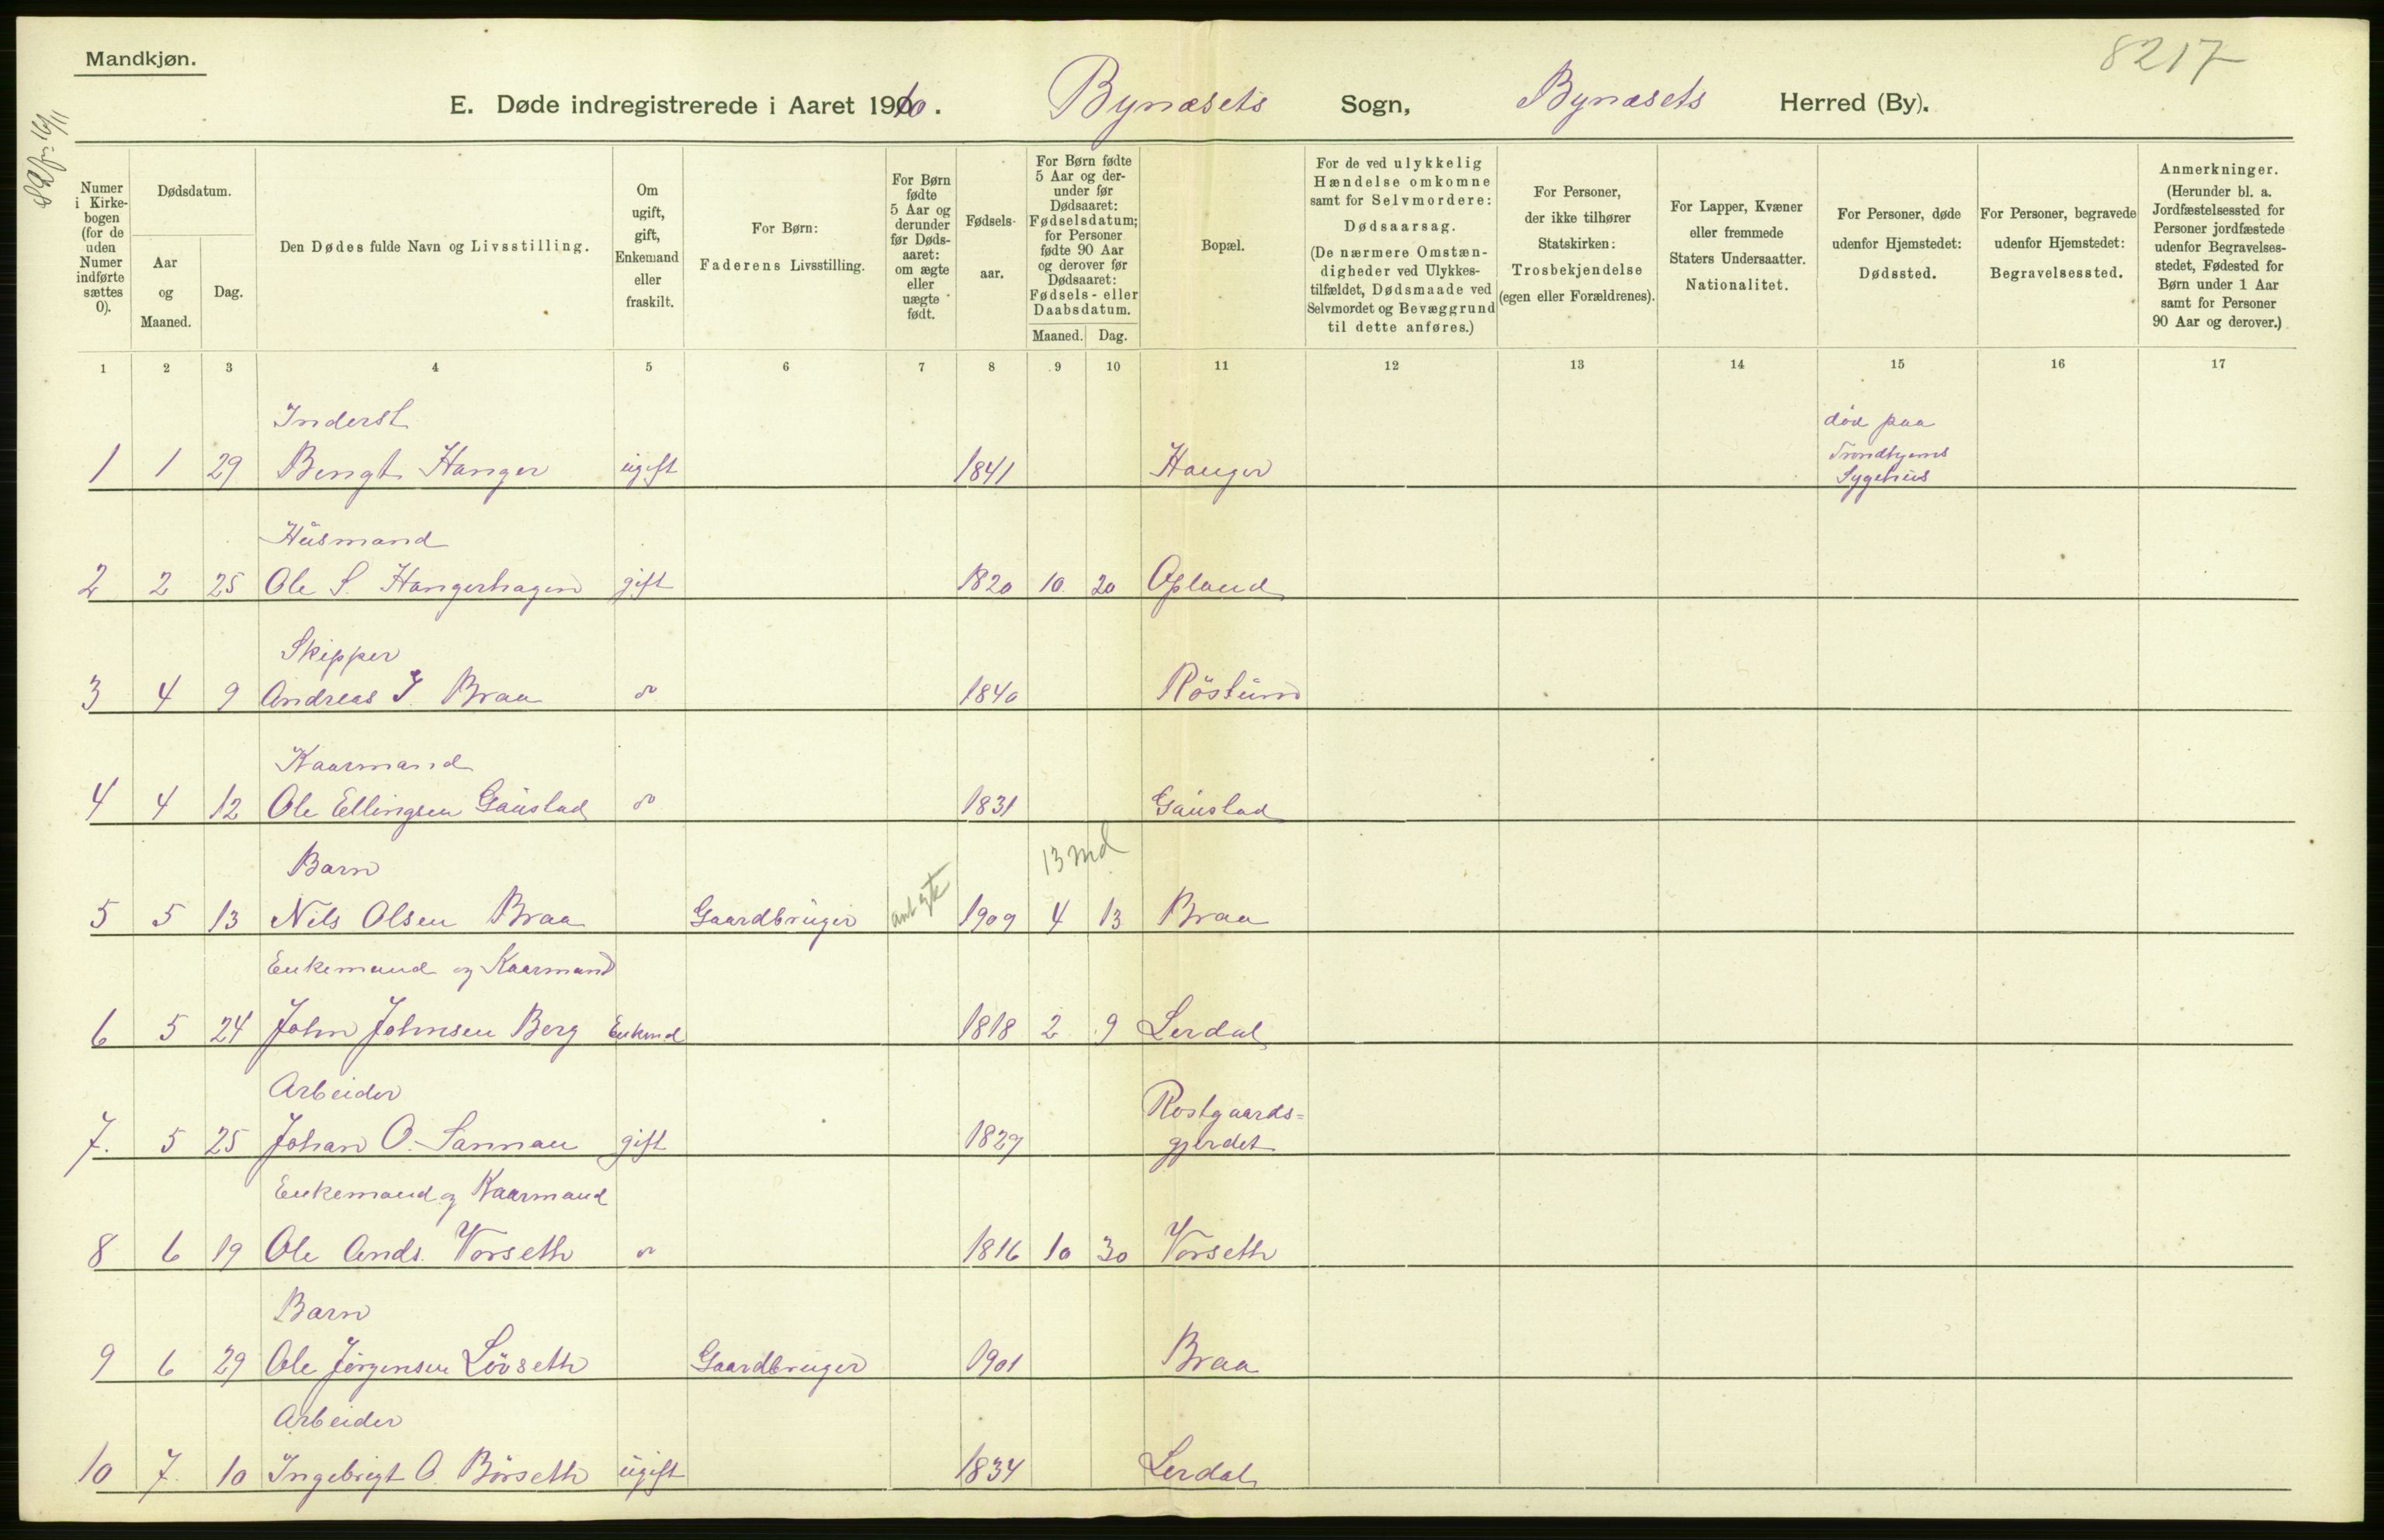 8217
Mandkjøn.
E. Døde indregistrerede i Aaret 1910. Bynæsets Sogn, Bynæsets Herred (By).
Numer i Kirke-bogen (for de uden Numer indførte sættes 0).
Dødsdatum.
Aar og Maaned.
Dag.
Den Dødes fulde Navn og Livsstilling.
Om ugift, gift, Enkemand eller fraskilt.
For Børn:
Faderens Livsstilling.
For Børn fødte 5 Aar og derunder før Døds-aaret: om ægte eller uægte født.
Fødsels-aar.
For Børn fødte 5 Aar og der-under før Dødsaaret: Fødselsdatum; for Personer fødte 90 Aar og derover før Dødsaaret: Fødsels- eller Daabsdatum.
Maaned. Dag.
Bopæl.
For de ved ulykkelig Hændelse omkomne samt for Selvmordere:
Dødsaarsag.
(De nærmere Omstæn-digheder ved Ulykkes-tilfældet, Dødsmaade ved Selvmordet og Bevæggrund til dette anføres.)
For Personer, der ikke tilhører Statskirken:
Trosbekjendelse
(egen eller Forældrenes).
For Lapper, Kvæner eller fremmede Staters Undersaatter.
Nationalitet.
For Personer, døde udenfor Hjemstedet:
Dødssted.
For Personer, begravede udenfor Hjemstedet:
Begravelsessted.
Anmerkninger.
(Herunder bl. a. Jordfæstelsessted for Personer jordfæstede udenfor Begravelses-stedet, Fødested for Børn under 1 Aar samt for Personer 90 Aar og derover.)
1 2 3 4 5 6 7 8 9 10 11 12 13 14 15 16 17
Inderst
1 1 29 Bengt Hanger ugift 1841 Hanger død paa Trondhjems Sygehus
Husmand
2 2 25 Ole S. Hangerhagen gift 1820 10 20 Opland
Skipper
3 4 9 Andreas J. Braa do 1840 Röstum
Kaarmand
4 4 12 Ole Ellingsen Gaustad do 1831 Gaustad
Barn 13 md
5 5 13 Nils Olsen Braa Gaardbruger ant ægte 1909 4 13 Braa
Enkemand og Kaarmand
6 5 24 John Johnsen Berg Enkmd 1818 2 9 Lerdal
Arbeider
7. 5 25 Johan O. Sannan gift 1829 Rostgaards=
gjerdet
Enkemand og Kaarmand
8 6 19 Ole Ands. Vorseth do 1816 10 30 Vorseth
Barn
9 6 29 Ole Jörgensen Lövseth Gaardbruger 1901 Braa
Arbeider
10 7. 10 Ingebrigt O. Börseth ugift 1834 Lerdal